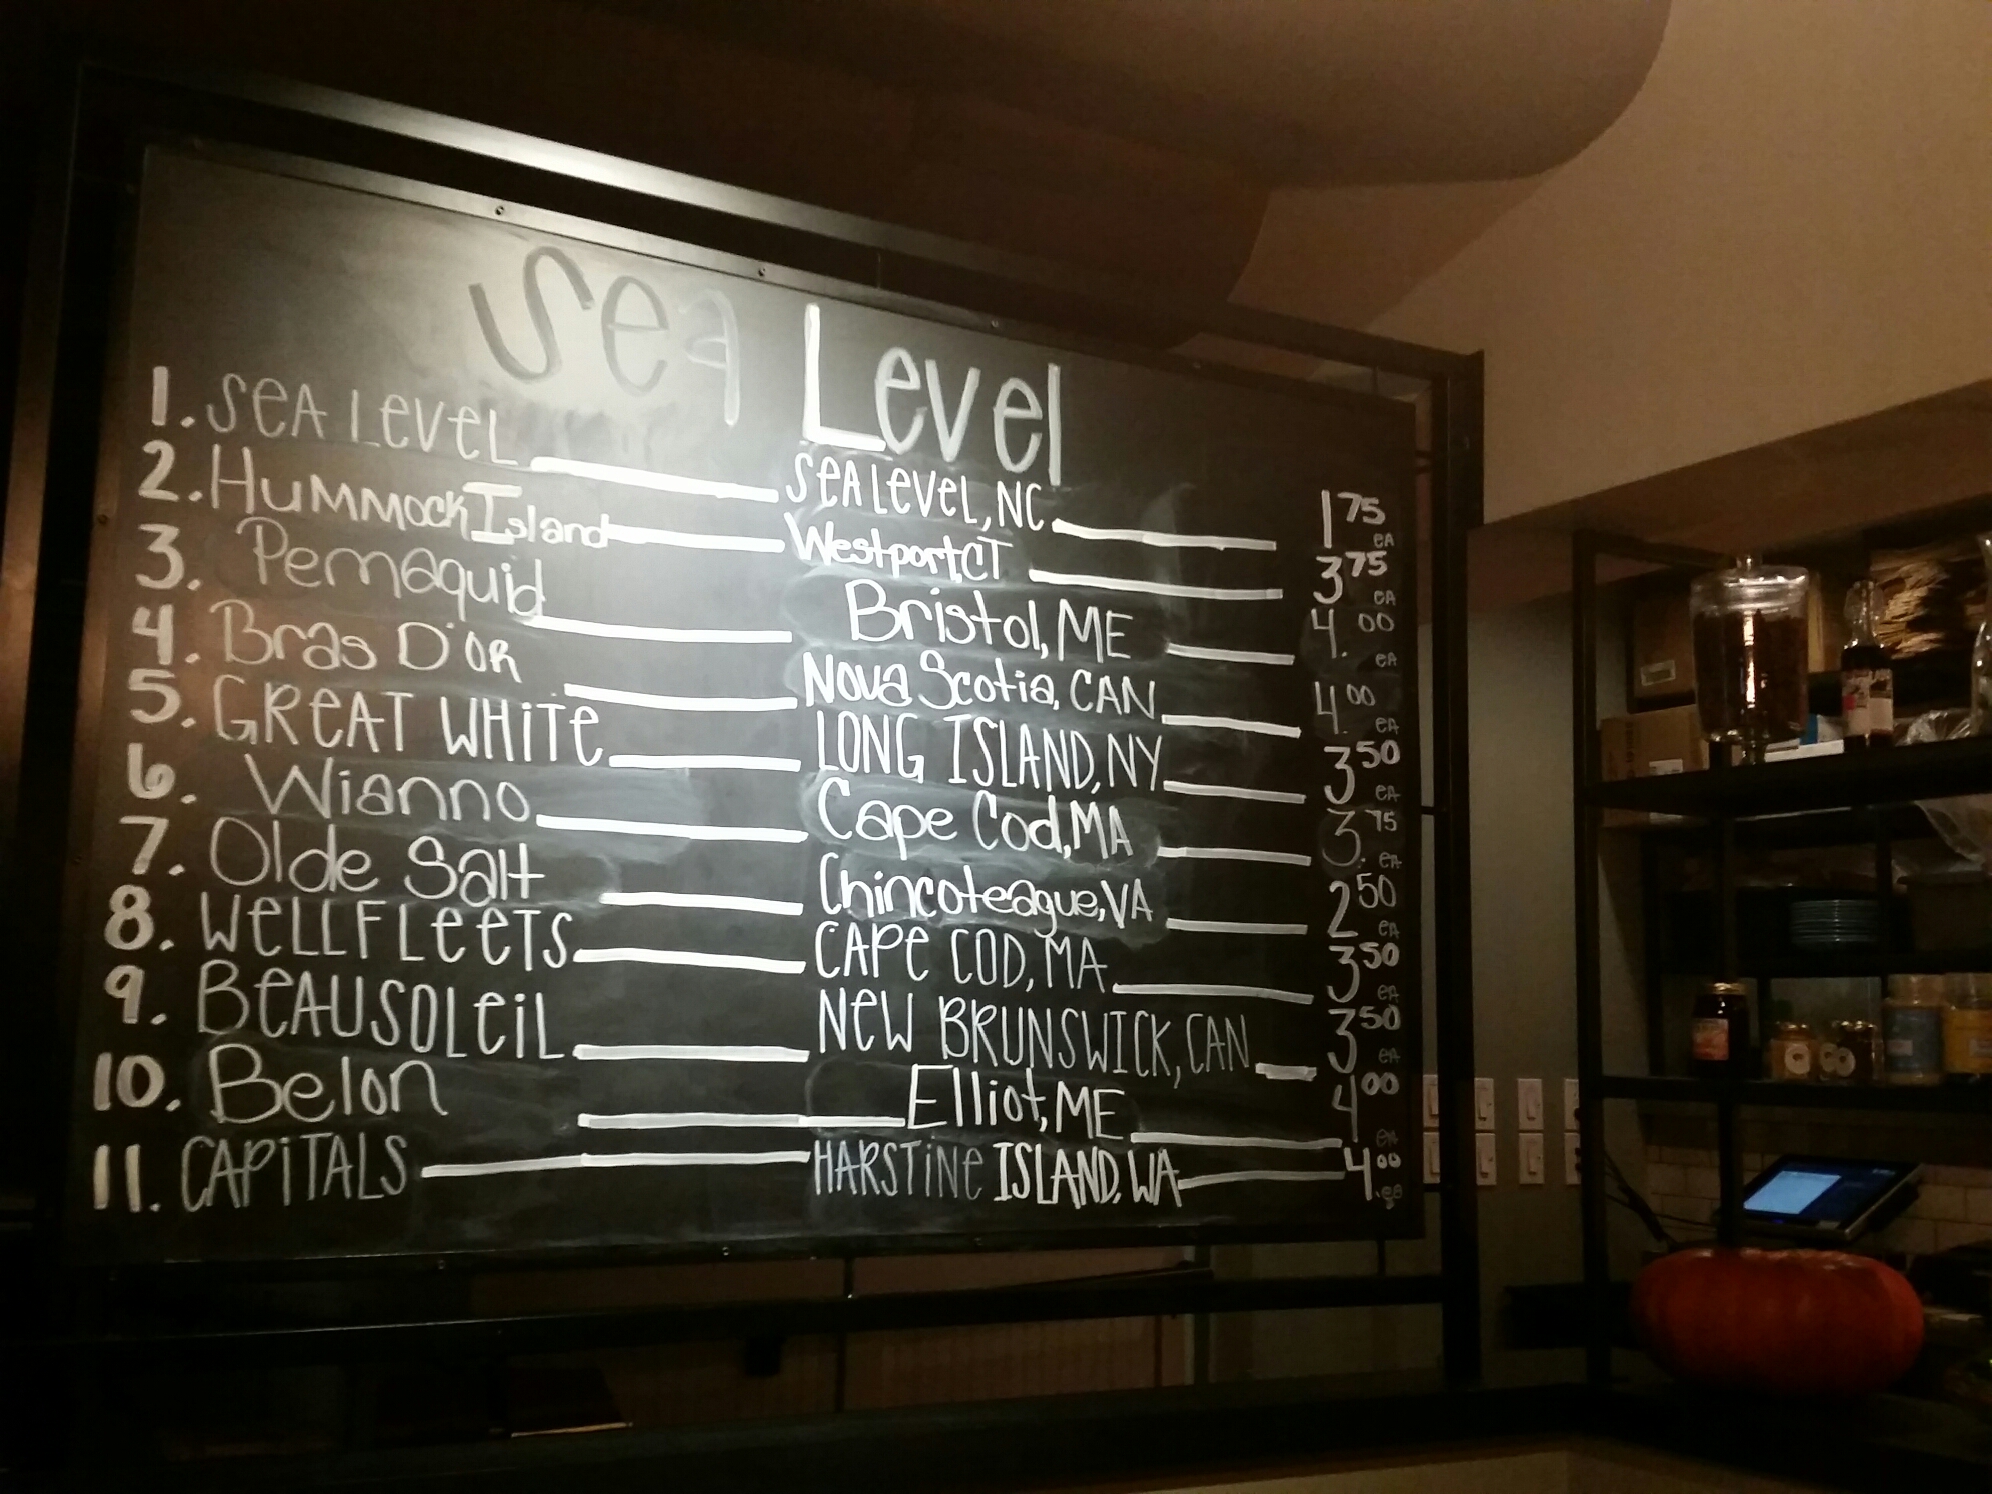 Sea Level
1. SEA LEVEL SEA LEVEL, NC 1 75 EA
2. Hummock Island Westport, CT 3 75 EA
3. Pemaquid Bristol, ME 4. 00 EA
4. Bras D'OR Nova Scotia, CAN 4. 00 EA
5. GREAT WHITE LONG ISLAND, NY 3 50 EA
6. Wianno Cape Cod, MA 3. 75 EA
7. Olde Salt Chincoteague, VA 2 50 EA
8. WELLFLEETS CAPE COD, MA 3 50 EA
9. BEAUSOLEIL NEW BRUNSWICK, CAN 3 50 EA
10. Belon Elliot, ME 4 00 EA
11. CAPITALS HARSTINE ISLAND, WA 4.00 ea